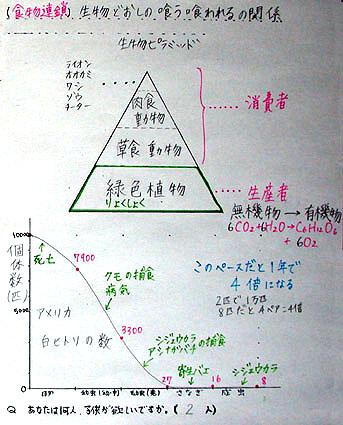 食物連鎖 生物どおしの"喰う""喰われる"の関係
生物ピラミッド
ライオン
オオカミ
ワシ
ゾウ
チーター
肉食
動物
草食 動物
緑色植物
りょくしょく
消費者
生産者
無機物 → 有機物
6CO2+6H2O→C6H12O6
+ 6O2
個体数(匹)
10000
5000
死亡
7900
クモの捕食
病気
3300
シジュウカラ
アシナガバチの捕食
27
寄生バエ
16
シジュウカラ
8
アメリカ
白ヒトリの数
このペースだと1年で
4倍になる
2匹で1万匹
8匹だと4ペア=4倍
さなぎ
成虫
Q あなたは何人、子供が欲しいですか。( 2 人)